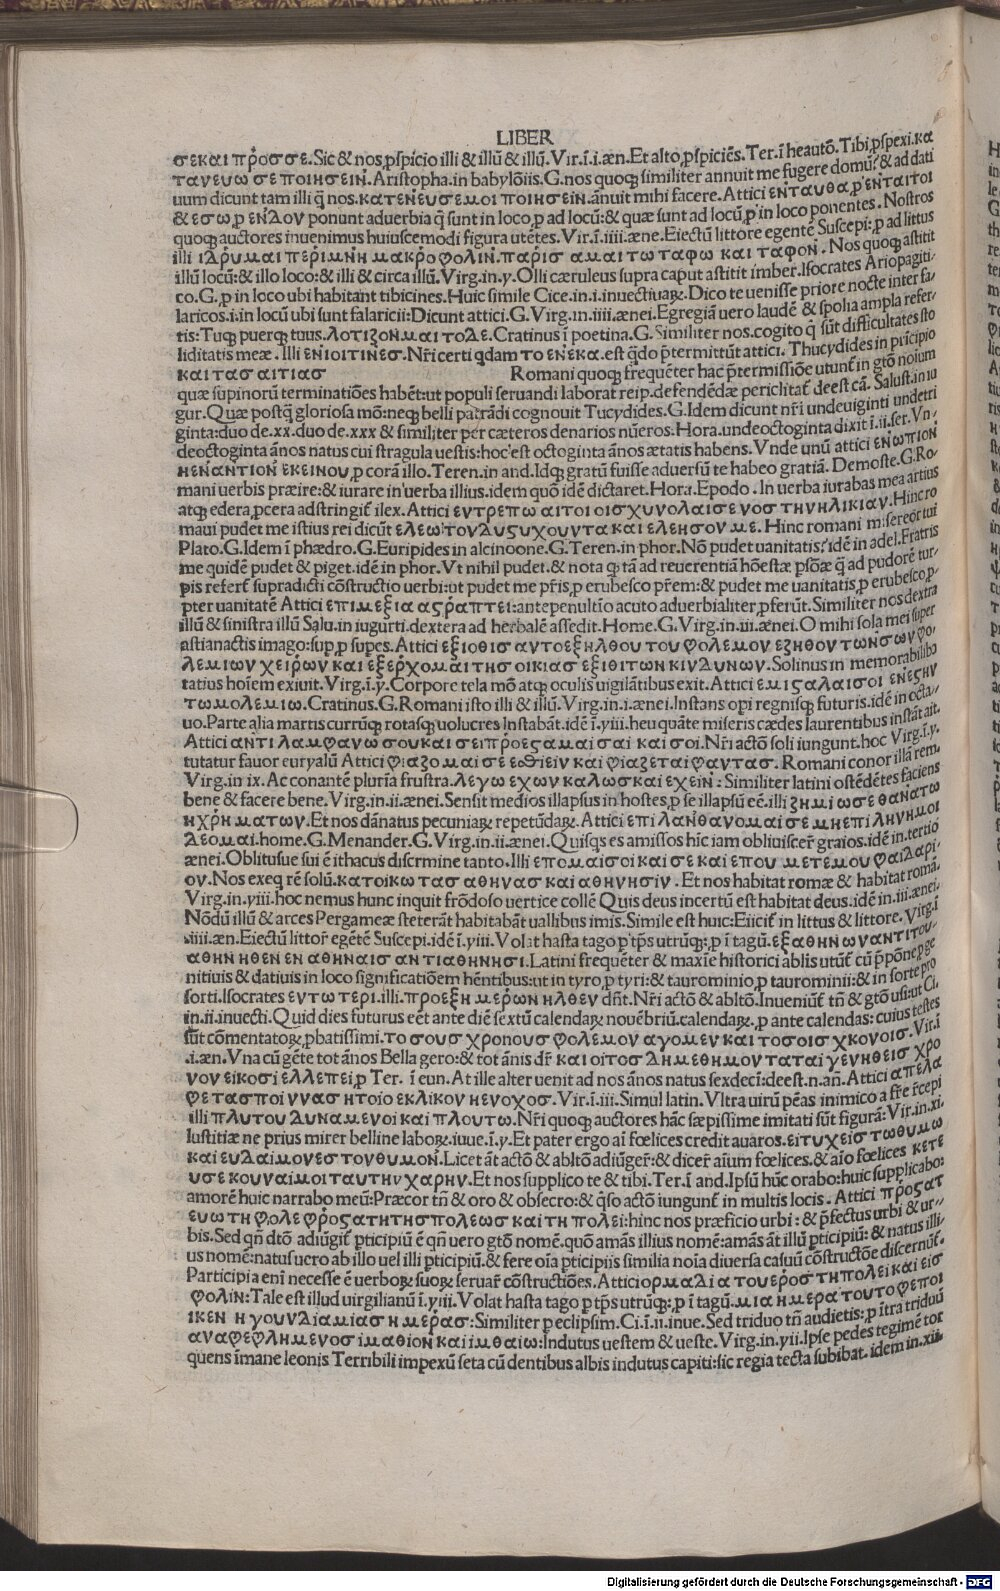 LIBER
σεκαι πῤοσσε. Sic & nos ꝓspicio illi & illũ & illũ. Vir.ĩ.i.æn. Et alto ꝓspiciẽs. Ter.ĩ heautõ. Tibi ꝓspexi. κα
τανευω σε ποιησειν. Aristopha.in babylõiis. G. nos quoqꝫ similiter annuit me fugere domũ? & ad dati
uum dicunt tam illi q̃ nos. κατενευσεμοι ποιησειν. ãnuit mihi facere. Attici ενταυθα ꝑ ενταιτοι
& εσω ꝑ ενδον ponunt aduerbia q̃ sunt in loco ꝓ ad locũ: & quæ sunt ad locũ, ꝓ in loco ponentes. Nostros
quoqꝫ auctores inuenimus huiuscemodi figura utẽtes. Vir.ĩ.iiii.æne. Eiectũ littore egentẽ Suscepi: ꝓ ad littus
illi ιδρυμαι περιμνη μακροφολιν. παρισ αμαι τω ταφω και ταφον. Nos quoqꝫ astitit
illũ locũ: & illo loco: & illi & circa illũ. Virg.in.y. Olli cæruleus supra caput astitit imber. Isocrates Ariopagiti-
co. G. ꝓ in loco ubi habitant tibicines. Huic simile Cice.in.i.inuectiuaꝝ. Dico te uenisse priore nocte inter fa/
laricos.i.in locũ ubi sunt falaricii: Dicunt attici. G. Virg.in.iiii.ænei. Egregiã uero laudẽ & spolia ampla refer/
tis: Tuqꝫ puerqꝫ tuus. λοτιζομαι τοδε. Cratinus ĩ poetina. G. Similiter nos. cogito q̃ sũt difficultates sto
liditatis meæ. Illi ενιοιτινεσ. Nr̃i certi qdam το ενεκα. est q̃do p̃termittũt attici. Thucydides in pricipio
και τασ αιτιασ Romani quoqꝫ frequẽter hac p̃termissiõe utunt̃ in gtõ noium
quæ supinorũ terminatiões habẽt: ut populi seruandi laborat reip. defendẽdæ periclitat̃ deest cã. Salust.in iu
gur. Quæ postq̃ gloriosa mõ: neqꝫ belli patrãdi cognouit Tucydides. G. Idem dicunt nr̃i undeuiginti undetri
ginta: duo de.xx. duo de.xxx & similiter per cæteros denarios nũeros: Hora. undeoctoginta dixit ĩ.ii.ser. Vn/
deoctoginta ãnos natus cui stragula uestis: hoc est octoginta ãnos ætatis habens. Vnde unũ attici ενωπιον
η εναντιον εκεινου, ꝓ corã illo. Teren.in and. Idqꝫ gratũ fuisse aduersũ te habeo gratiã. Demoste. G. Ro-
mani uerbis præire: & iurare in uerba illius. idem quõ idẽ dictaret. Hora. Epodo. In uerba iurabas mea artius
atqꝫ edera ꝓcera adstringit̃ ilex. Attici εντρεπωαιτοι οισχυνολαισενοσ την ηλικιαν. Hinc ro
maui pudet me istius rei dicũt ελεω τον δυςυχουντα και ελεησον με. Hinc romani misereor tui
Plato. G. Idem ĩ phædro. G. Euripides in alcinoone. G. Teren.in phor. Nõ pudet uanitatis? idẽ in adel. Fratris
me quidẽ pudet & piget. idẽ in phor. Vt nihil pudet. & nota q tã ad reuerentiã hõestæ psõæ q̃ ad pudorẽ tur-
pis refert̃ supradicti cõstructio uerbi: ut pudet me pr̃is, ꝓ erubesco pr̃em: & pudet me uanitatis, ꝓ erubesco, ꝓ-
pter uanitatẽ Attici επιμεξια αςραπτει: antepenultĩo acuto aduerbialiter ꝓferũt. Similiter nos dextra
illũ & sinistra illũ Salu.in iugurti. dextera ad herbalẽ assedit. Home. G. Virg.in.iii.ænei. O mihi sola mei super
astianactis imago: sup, ꝓ supes. Attici εξιοθισ αντοεξηλθου του φολεμου εζηθον τωνσων φο-
λεμιων χειρων και εξερχομαι τησ οικιασ εξιθιτων κινδυνων. Solinus in memorabilibꝫ
tatius hoiem exiuit. Virg.ĩ.y. Corpore tela mõ atqꝫ oculis uigilãtibus exit. Attici εμιςαλαισοι ενεςην
τωμολεμιω. Cratinus. G. Romani isto illi & illũ. Virg.in.i.ænei. Instans opi regnisqꝫ futuris. idẽ in octa/
uo. Parte alia martis currũqꝫ rotasqꝫ uolucres Instabãt. idẽ ĩ.yiii. heu quãte miseris cædes laurentibus instãt ait.
Attici αντιλαμφανω σου και σειπροεςαμαι σαι και σοι. Nr̃i actõ soli iungunt. hoc Virg.ĩ.y.
tutatur fauor euryalũ Attici φιαζομαι σε εσθιειν και φιαζεται φαντασ. Romani conor illã rem.
Virg.in ix. Ac conantẽ plurĩa frustra. λεγω εχων καλωσ και εχειν: Similiter latini ostẽdẽtes faciens
bene & facere bene. Virg.in.ii.ænei. Sensit medios illapsus in hostes, ꝓ se illapsũ eẽ. illi ζημιωσε θανατω
η χρηματων. Et nos dãnatus pecuniaꝝ repetũdaꝝ. Attici επιλανθανομαι σε μη επιληνημοι
δεομαι. home. G. Menander. G. Virg.in.ii.ænei. Quisqs es amissos hic iam obliuiscer̃ graios. idẽ in. tertio
ænei. Oblitusue sui ẽ ithacus discrmine tanto. Illi επομαισοι και σε και επου μετεμου φαιδαρι-
ον. Nos exeq rẽ solũ. κατοικω τασ αθηνασ και αθηνησιν. Et nos habitat romæ & habitat romã.
Virg.in.yiii. hoc nemus hunc inquit frõdoso uertice collẽ Quis deus incertũ est habitat deus. idẽ in.iii.ænei.
Nõdũ illũ & arces Pergameæ steterãt habitabãt uallibus imis. Simile est huic: Eiicit̃ in littus & littore. Virg.ĩ
.iiii.æn. Eiectũ littor̃ egẽtẽ Suscepi. idẽ ĩ.yiii. Volat hasta tago ꝑ tp̃s utrũqꝫ:, ꝓ ĩ tagũ. εξαθηνων αντιτου-
αθηνηθεν εν αθηναισ αντιαθηνησι. Latini frequẽter & maxĩe historici ablis utũt̃ cũ p̃põne ꝓ ge
nitiuis & datiuis in loco significatiõem hẽntibus: ut in tyro, ꝓ tyri: & taurominio, ꝓ taurominii: & in sorte ꝓ
sorti. Isocrates εντωτερι. illi. προεξημερων ηλθεν dñt. Nr̃i actõ & abltõ. Inueniũt̃ tñ & gtõ usi: ut Ci.
in.ii.inuecti. Quid dies futurus eẽt ante diẽ sextũ calendaꝝ nouẽbriũ. calendaꝝ., ꝓ ante calendas: cuius testes
sũt cõmentatoꝝ, ꝓbatissimi. το σουσ χρονουσ φολεμον αγομεν και τοσοισ χκονοισ. Vir.ĩ
.i.æn. Vna cũ gẽte tot ãnos Bella gero: & tot ãnis dr̃ και οιτοσ δημεθημον ταται γενηθεισ χρο
νον εικοσι ελλεπει, ꝓ Ter. ĩ eun. At ille alter uenit ad nos ãnos natus sexdecĩ: deest.n.añ. Attici απελα
φετασ ποι ννασ ητοιο εκλικον η ενοχοσ. Vir.ĩ.iii. Simul latin. Vltra uirũ pẽas inimico a fr̃e r̃cepi
illi πλυτου δυναμενοι και πλουτω. Nr̃i quoqꝫ auctores hãc sæpissime imitati sũt figurã: Vir.in.xi.
Iustitiæ ne prius mirer belline laboꝝ. iuue.ĩ.y. Et pater ergo aĩ fœlices credit auaros. ειτυχεισ τω θυμω
και ευδαιμονεσ τονθυμον. Licet ãt actõ & abltõ adiũger̃: & dicer̃ aĩum fœlices. & aĩo fœlices κετε
υσεκουναιμοι ταυτην χαρην. Et nos supplico te & tibi. Ter.ĩ and. Ipsũ hũc orabo: huic supplicabo:
amorẽ huic narrabo meũ: Præcor tñ & oro & obsecro: & q̃so actõ iungunt̃ in multis locis. Attici προςατ
ευω τη φολεφροςατητησ πολεωσ και τη πολει: hinc nos præficio urbi: & p̃fectus urbi & ur/
bis. Sed qñ dtõ adiũgit̃ pticipiũ ẽ qñ uero gtõ nomẽ. quõ amãs illius nomẽ: amãs ãt illũ pticipiũ: & natus illi/
us nomẽ: natus ucro ab illo uel illi pticipiũ. & fere oĩa pticipiis similia noĩa diuersa casuũ cõstructõe discernũt̃.
Participia enĩ necesse ẽ uerboꝝ suoꝝ seruar̃ cõstructiões. Attici ορμαδια του εροσ τη πολει και εισ
φολιν: Tale est illud uirgilianũ ĩ.yiii. Volat hasta tago ꝑ tp̃s utrũqꝫ:, ꝓ ĩ tagũ. μια ημερα τουτο φεποι
ικεν η γουνδιαμιασ ημερασ: Similiter ꝑ eclipsim. Ci.ĩ.ii.inue. Sed triduo tñ audietis: ꝓ ĩtra triduũ
αναφεφλημενοσ ιμαθιον και ιμθαιω: Indutus uestem & ueste. Virg.in.yii. Ipse pedes tegimẽ tor
quens ĩmane leonis Terribili impexũ seta cũ dentibus albis indutus capiti: sic regia tecta subibat. idem in.xii.
Digitalisierung gefördert durch die Deutsche Forschungsgemeinschaft - DFG